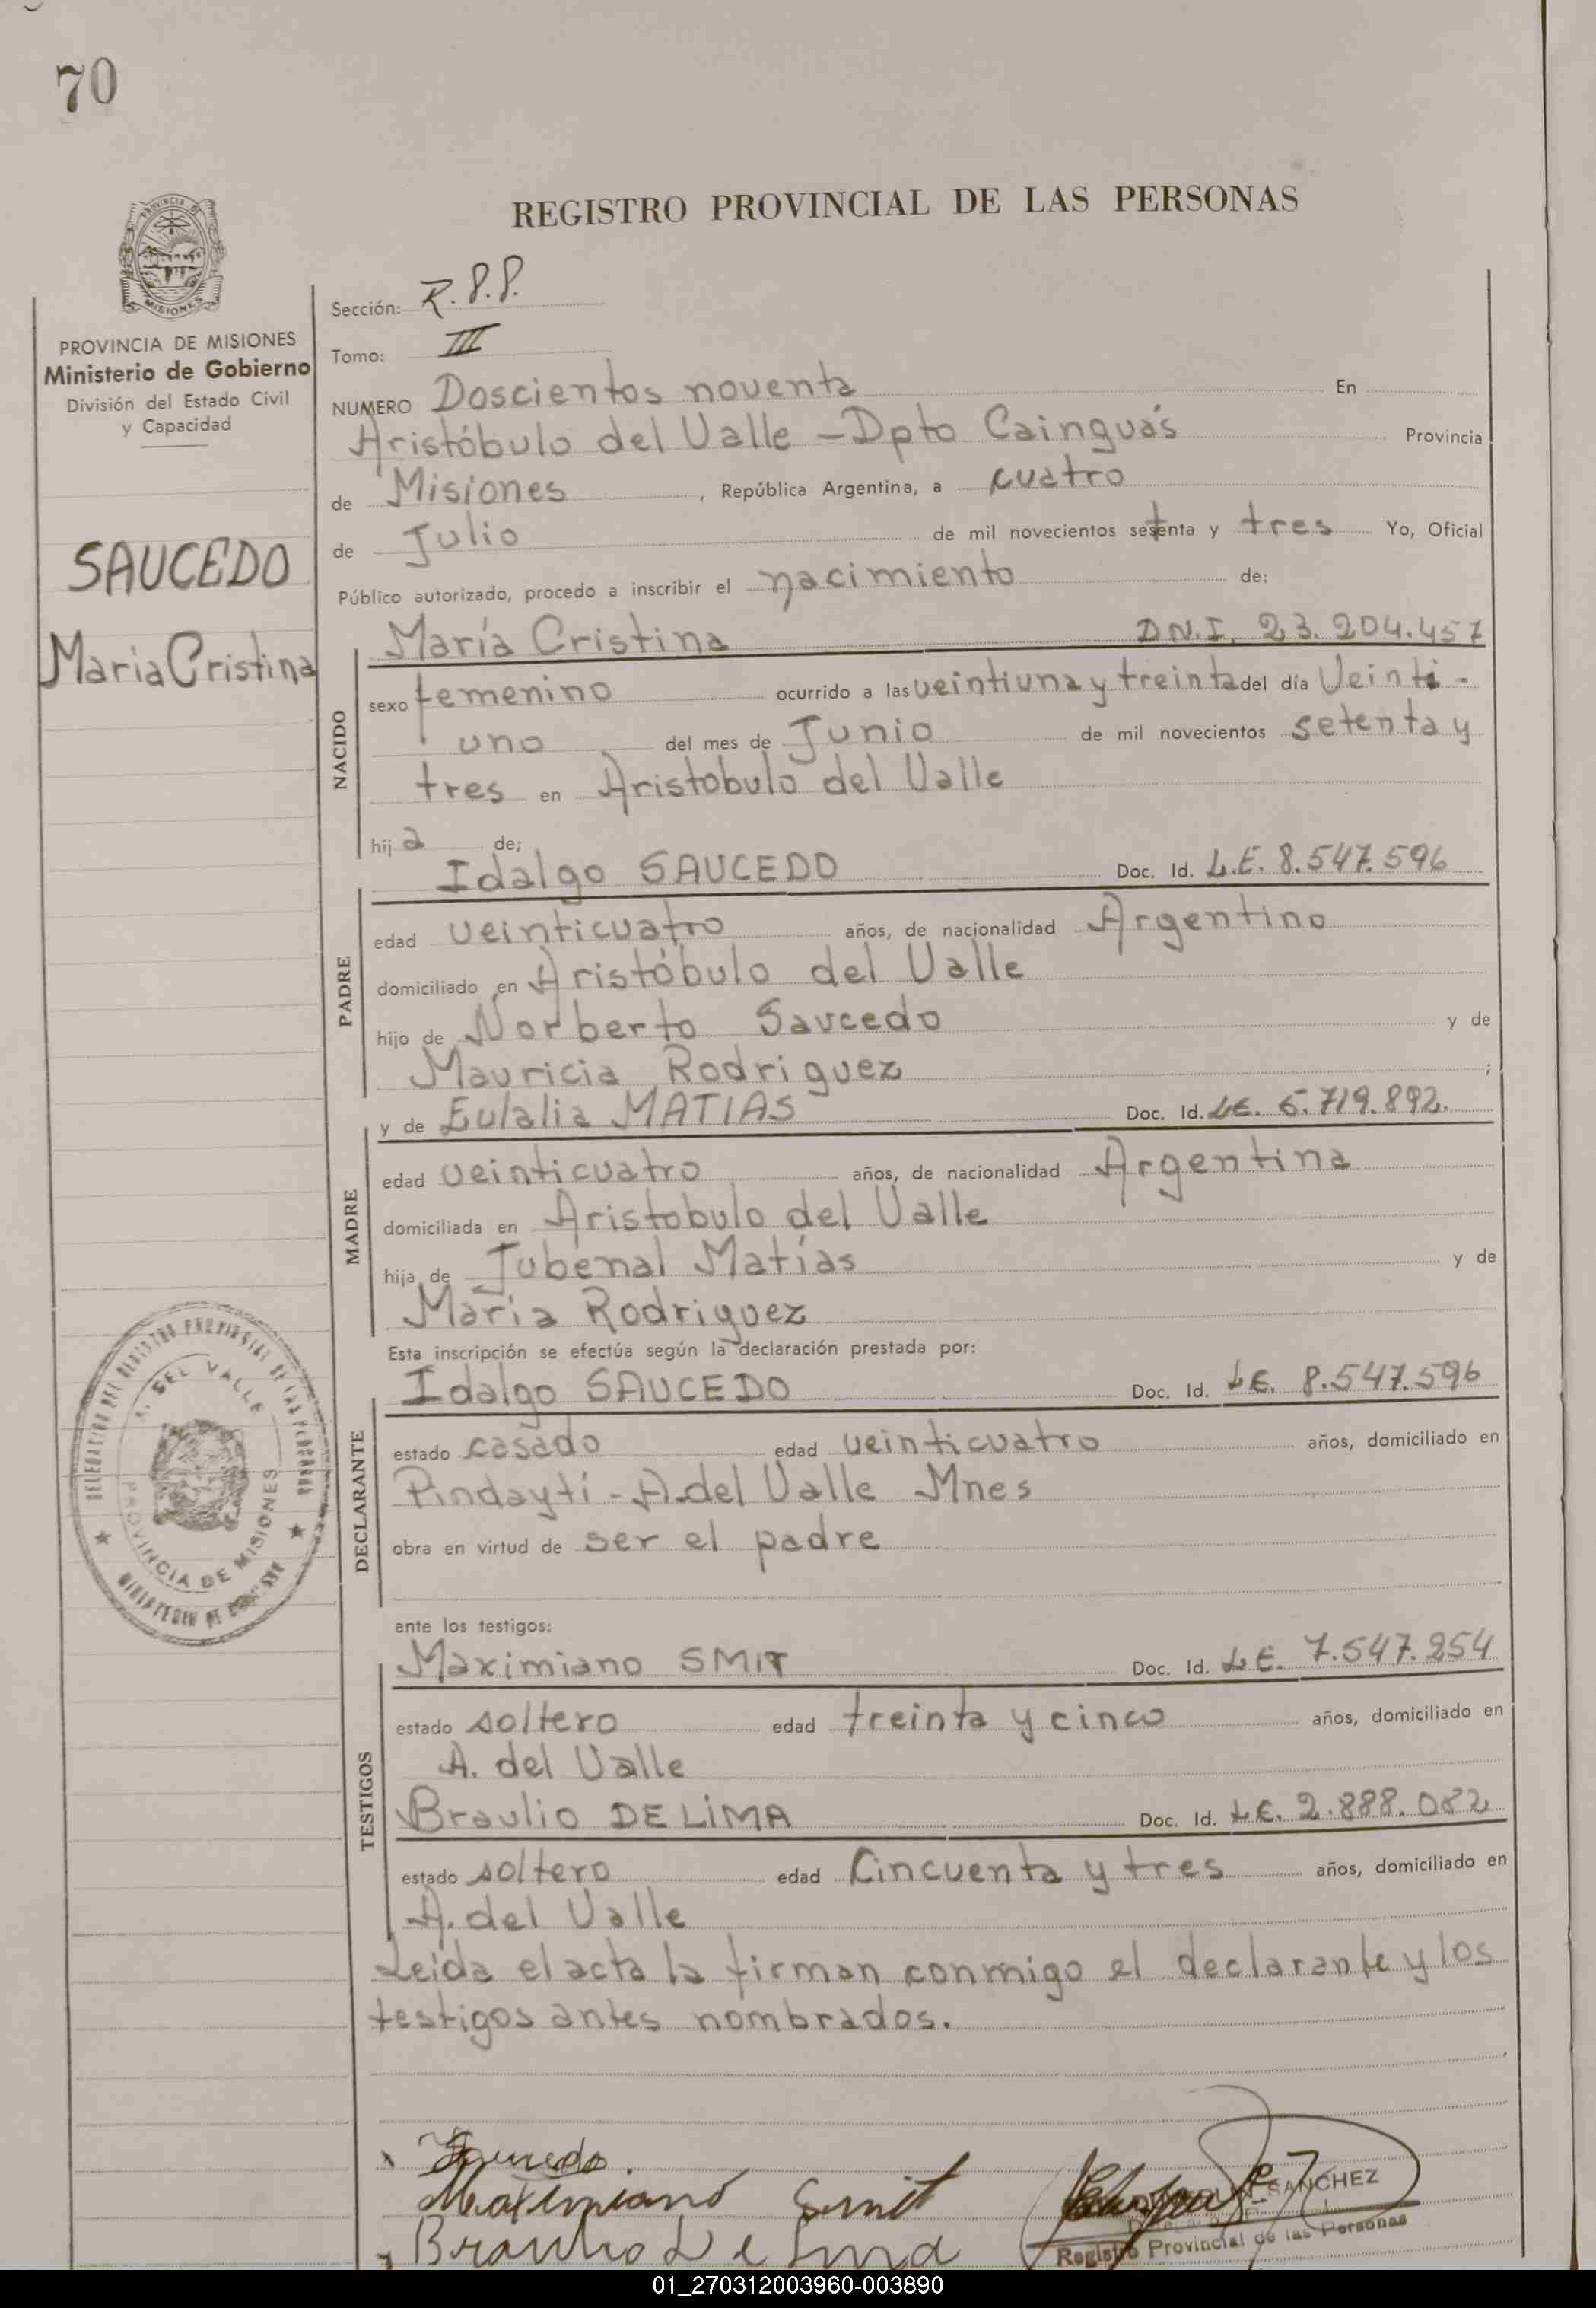 70
REGISTRO PROVINCIAL DE LAS PERSONAS
MISIONES
PROVINCIA DE MISIONES
Ministerio de Gobierno
División del Estado Civil
y Capacidad
SAUCEDO
Maria Cristina
Sección: R.P.P.
Tomo: III
NUMERO Doscientos noventa En
Aristóbulo del Valle - Dpto Cainguás Provincia
de Misiones, República Argentina, a cuatro
de Julio de mil novecientos setenta y tres Yo, Oficial
Público autorizado, procedo a inscribir el nacimiento de:
María Cristina D.N.I. 23.204.457
NACIDO
sexo femenino ocurrido a las veintiuna y treinta del día Veinti-
uno del mes de Junio de mil novecientos setenta y
tres en Aristobulo del Valle
hija de;
Idalgo SAUCEDO Doc. Id. L.E. 8.547.596
PADRE
edad veinticuatro años, de nacionalidad Argentino
domiciliado en Aristóbulo del Valle
hijo de Norberto Saucedo y de
Mauricia Rodriguez ;
y de Eulalia MATIAS Doc. Id. L.E. 6.719.892.
MADRE
edad veinticuatro años, de nacionalidad Argentina
domiciliada en Aristobulo del Valle
hija de Jubenal Matías y de
María Rodriguez
Esta inscripción se efectúa según la declaración prestada por:
Idalgo SAUCEDO Doc. Id. L.E. 8.547.596
DECLARANTE
estado casado edad veinticuatro años, domiciliado en
Pindayti - A. del Valle Mnes
obra en virtud de ser el padre
ante los testigos:
Maximiano SMIT Doc. Id. L.E. 7.547.254
TESTIGOS
estado soltero edad treinta y cinco años, domiciliado en
A. del Valle
Braulio DE LIMA Doc. Id. L.E. 2.888.082
estado soltero edad Cincuenta y tres años, domiciliado en
A. del Valle
Leída el acta la firman conmigo el declarante y los
testigos antes nombrados.
DELEGACION DEL REGISTRO PROVINCIAL DE LAS PERSONAS
A. DEL VALLE
PROVINCIA DE MISIONES
MINISTERIO DE GOBIERNO
Saucedo.
Maximiano Smit
Braulio De Lima
SANCHEZ
Registro Provincial de las Personas
01_270312003960-003890